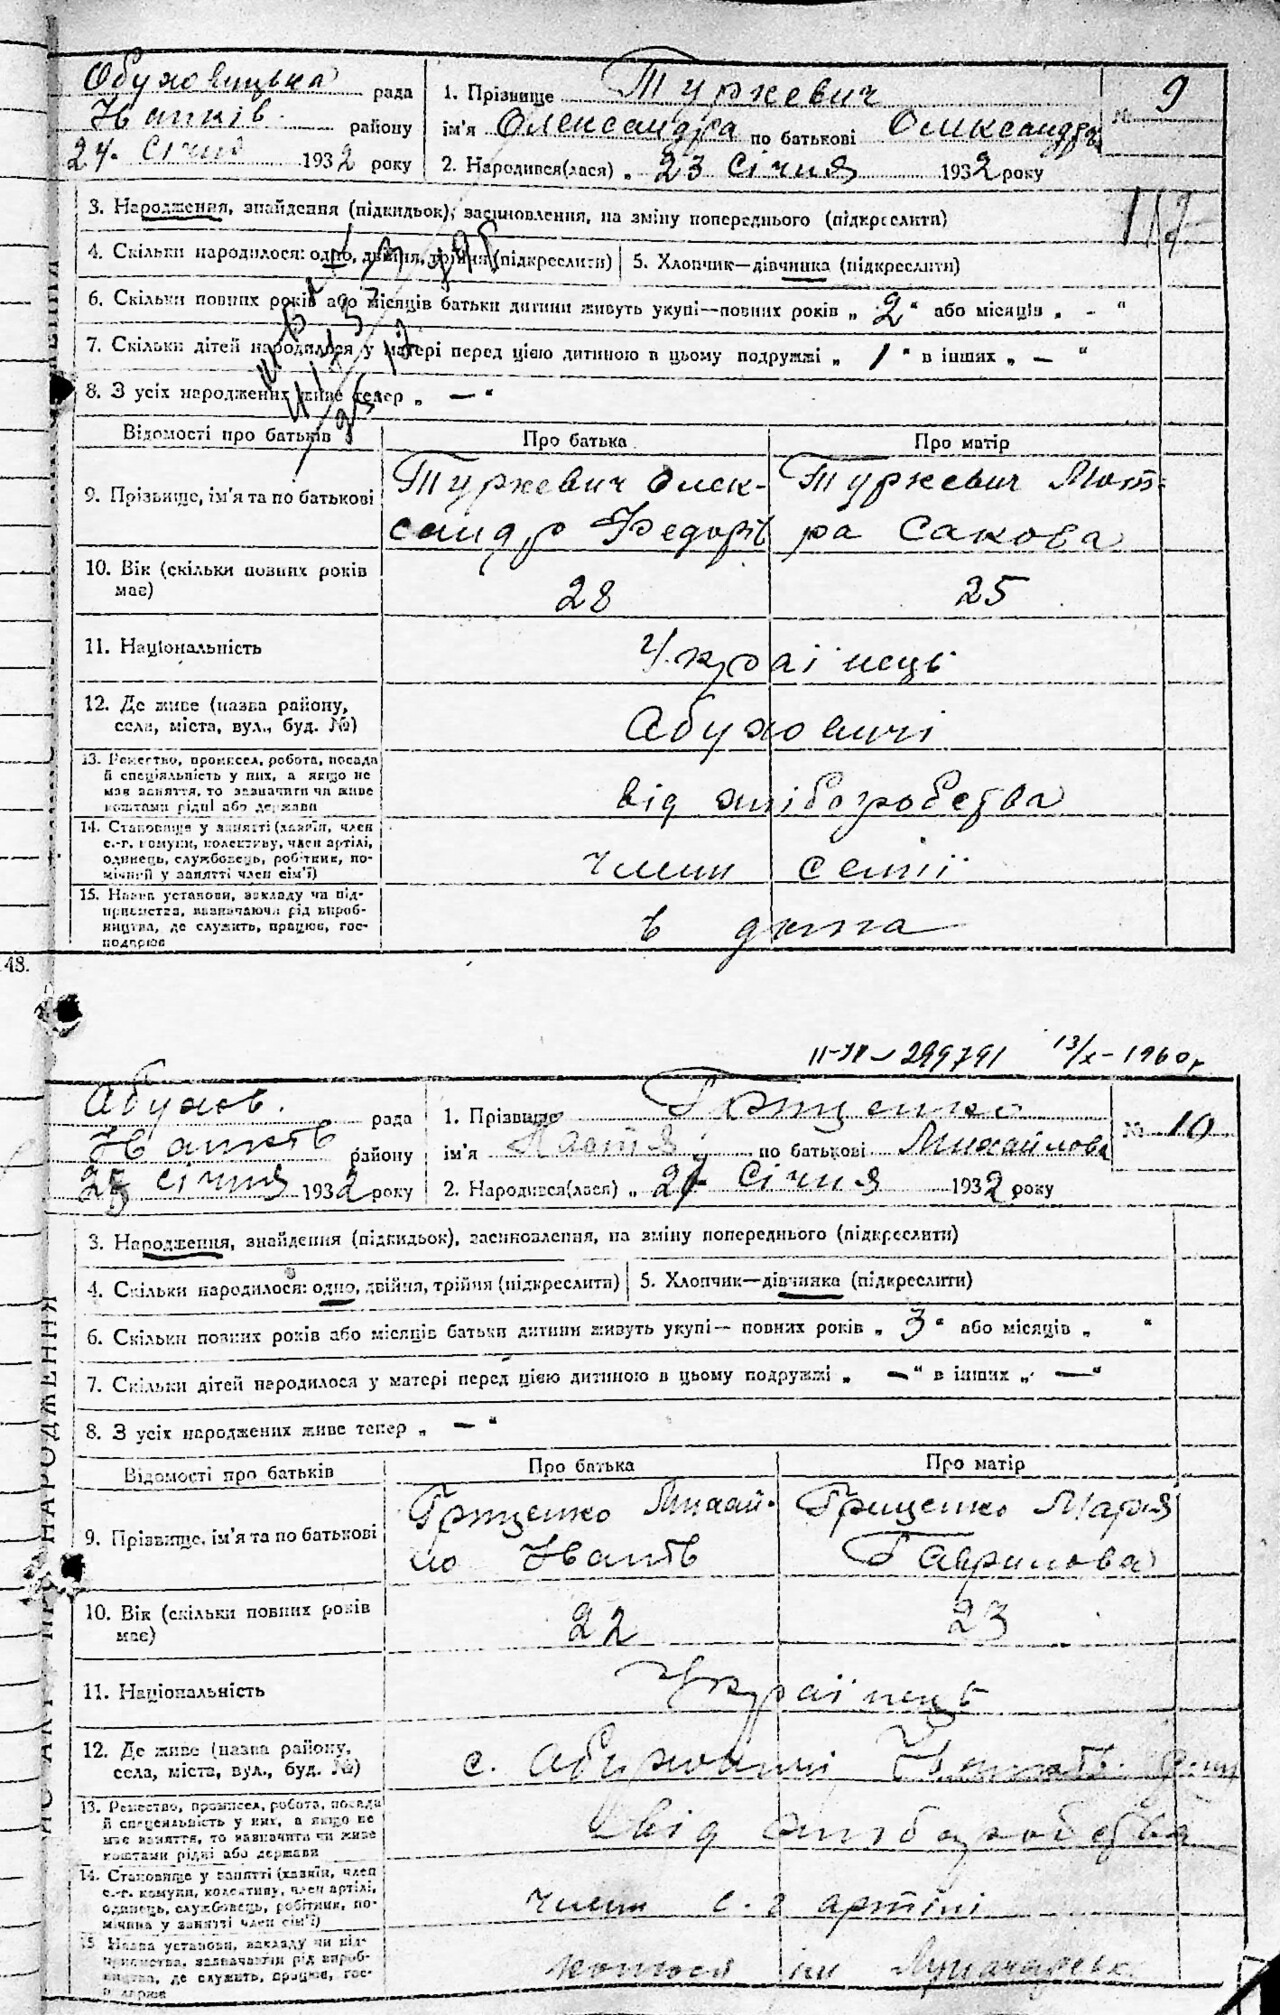 Обуховицька рада
Іванків району
24. Січня 1932 року
1. Прізвище Туркевич
ім'я Олександра по батькові Олександров
2. Народився(лася) „ 23 Січня 1932 року
№ 9
3. Народження, знайдення (підкидьок), засиновлення, на зміну попереднього (підкреслити)
4. Скільки народилося: одно, двійня, трійня (підкреслити) 5. Хлопчик—дівчинка (підкреслити)
6. Скільки повних років або місяців батьки дитини живуть укупі—повних років „ 2 “ або місяців „ - “
7. Скільки дітей народилося у матері перед цією дитиною в цьому подружжі „ 1 “ в інших „ — “
8. З усіх народжених живе тепер „ — “
Відомості про батьків Про батька Про матір
9. Прізьвище, ім'я та по батькові Туркевич Олек- Туркевич Мот-
сандр Федорів ра Сакова
10. Вік (скільки повних років
має) 28 25
11. Національність Українець
12. Де живе (назва району,
села, міста, вул., буд. №) Абуховичі
13. Ремество, промисел, робота, посада
й спеціяльність у них, а якщо не
має заняття, то зазначити чи живе
коштами рідні або держави
від хліборобства
14. Становище у занятті (хазяїн, член
с.-г. комуни, колективу, член артілі,
одинець, службовець, робітник, по-
мічний у занятті член сім'ї)
член семії
15. Назва установи, закладу чи під-
приємства, зазначаючи рід вироб-
ництва, де служить, працює, гос-
подарює
48.
299791 13/X-1960 г
Абухов. рада
Іванків району
25 Січня 1932 року
1. Прізвище Грищенко
ім'я Настя по батькові Михайлова
2. Народився(лася) „ 24 Січня 1932 року
№ 10
3. Народження, знайдення (підкидьок), засиновлення, на зміну попереднього (підкреслити)
4. Скільки народилося: одно, двійня, трійня (підкреслити) 5. Хлопчик—дівчинка (підкреслити)
6. Скільки повних років або місяців батьки дитини живуть укупі— повних років „ 3 “ або місяців „ “
7. Скільки дітей народилося у матері перед цією дитиною в цьому подружжі „ — “ в інших „ — “
8. З усіх народжених живе тепер „ — “
Відомості про батьків Про батька Про матір
9. Прізвище, ім'я та по батькові Грищенко Михай- Грищенко Марія
ло Іванів Гаврилова
10. Вік (скільки повних років
має) 22 23
11. Національність Українець
12. Де живе (назва району,
села, міста, вул., буд. №) с. Абуховичі Іванків.
13. Ремество, промисел, робота, посада
й спеціяльність у них, а якщо не
має заняття, то зазначити чи живе
коштами рідні або держави
від хліборобства
14. Становище у занятті (хазяїн, член
с.-г. комуни, колективу, член артілі,
одинець, службовець, робітник, по-
мічний у занятті член сім'ї)
член с. г артілі
15 Назва установи, закладу чи під-
приємства, зазначаючи рід вироб-
ництва, де служить, працює, гос-
подарює